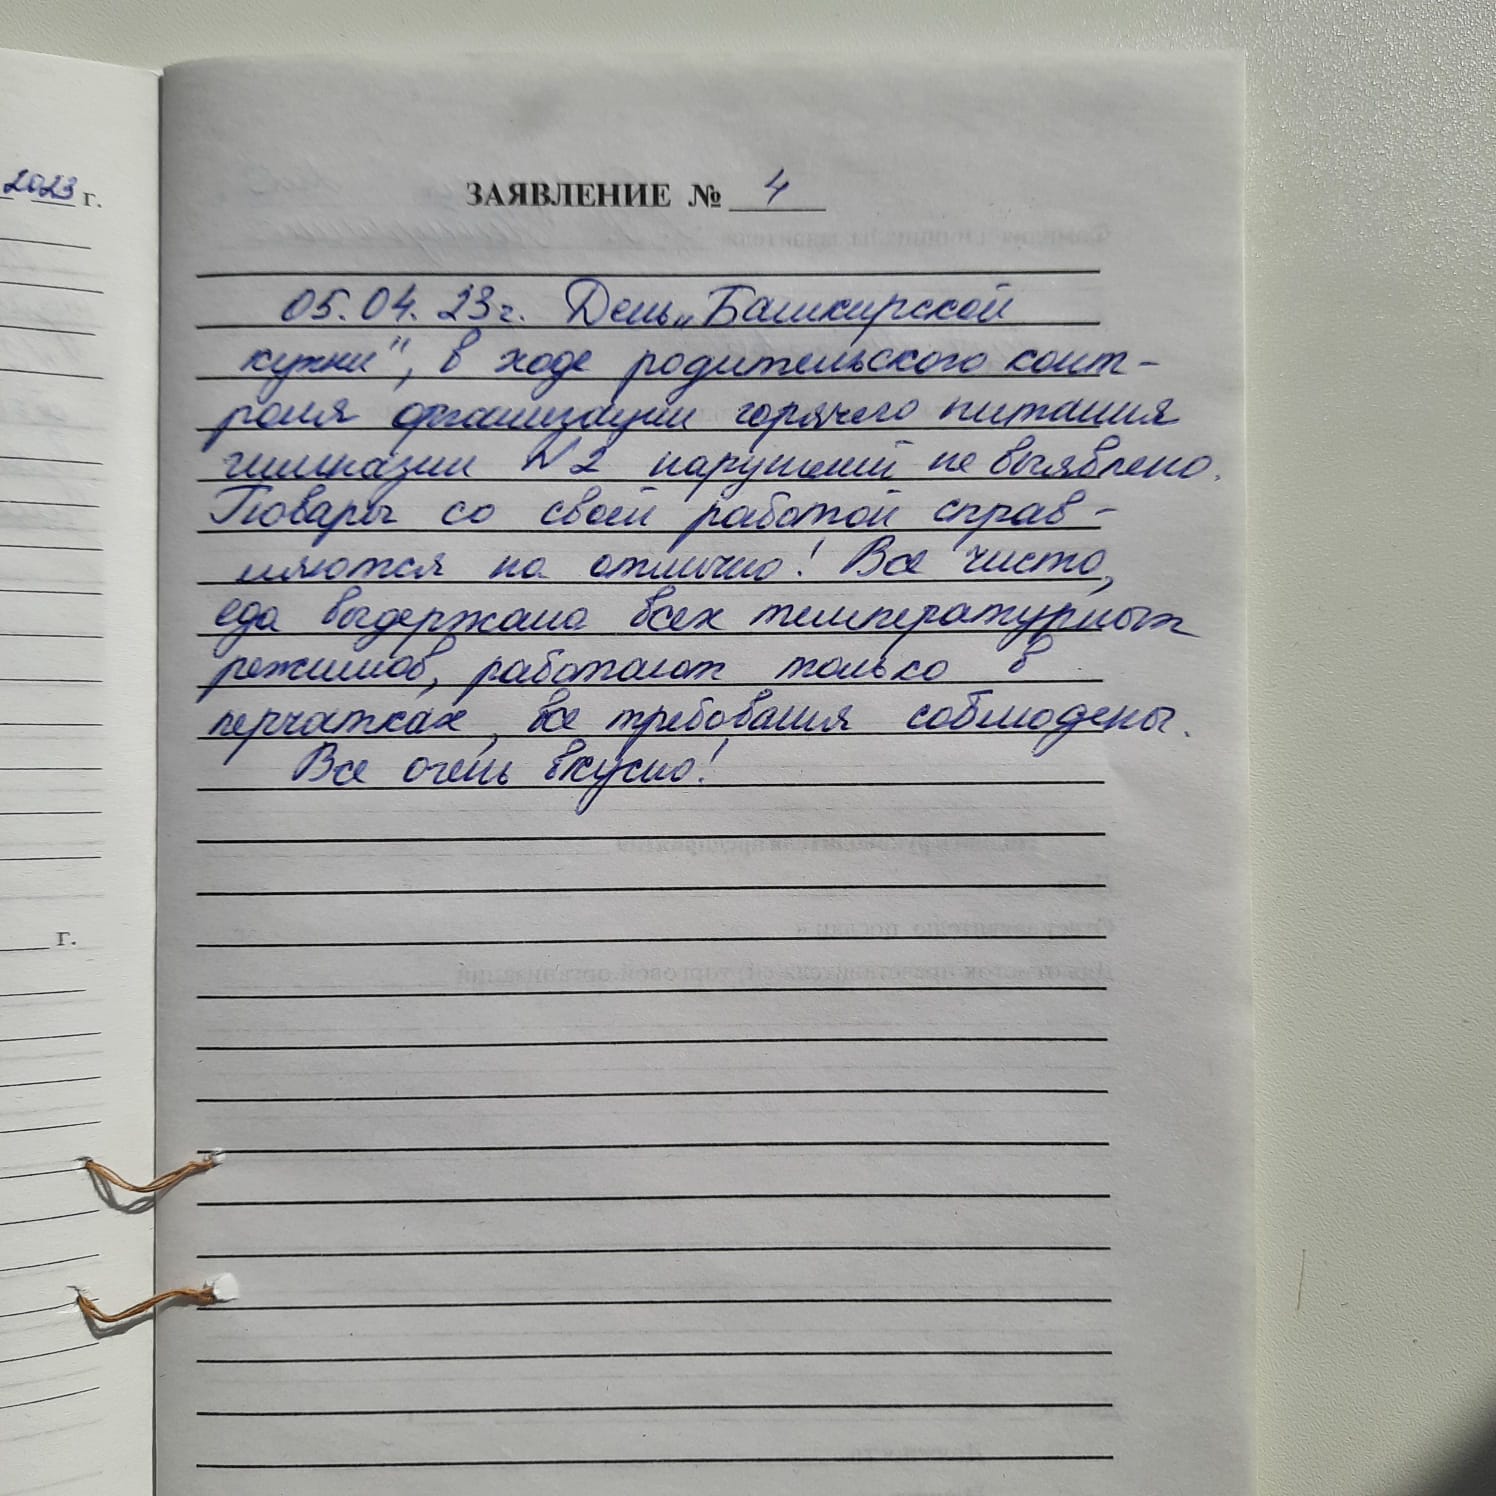 2023 г.
ЗАЯВЛЕНИЕ № 4
05.04.23г. День „Башкирской
кухни", в ходе родительского конт-
роля организации горячего питания
гимназии №2 нарушений не выявлено.
Повары со своей работой справ-
ляются на отлично! Все чисто,
еда выдержана всех температурных
режимов, работают только в
перчатках, все требования соблюдены.
Все очень вкусно!
г.